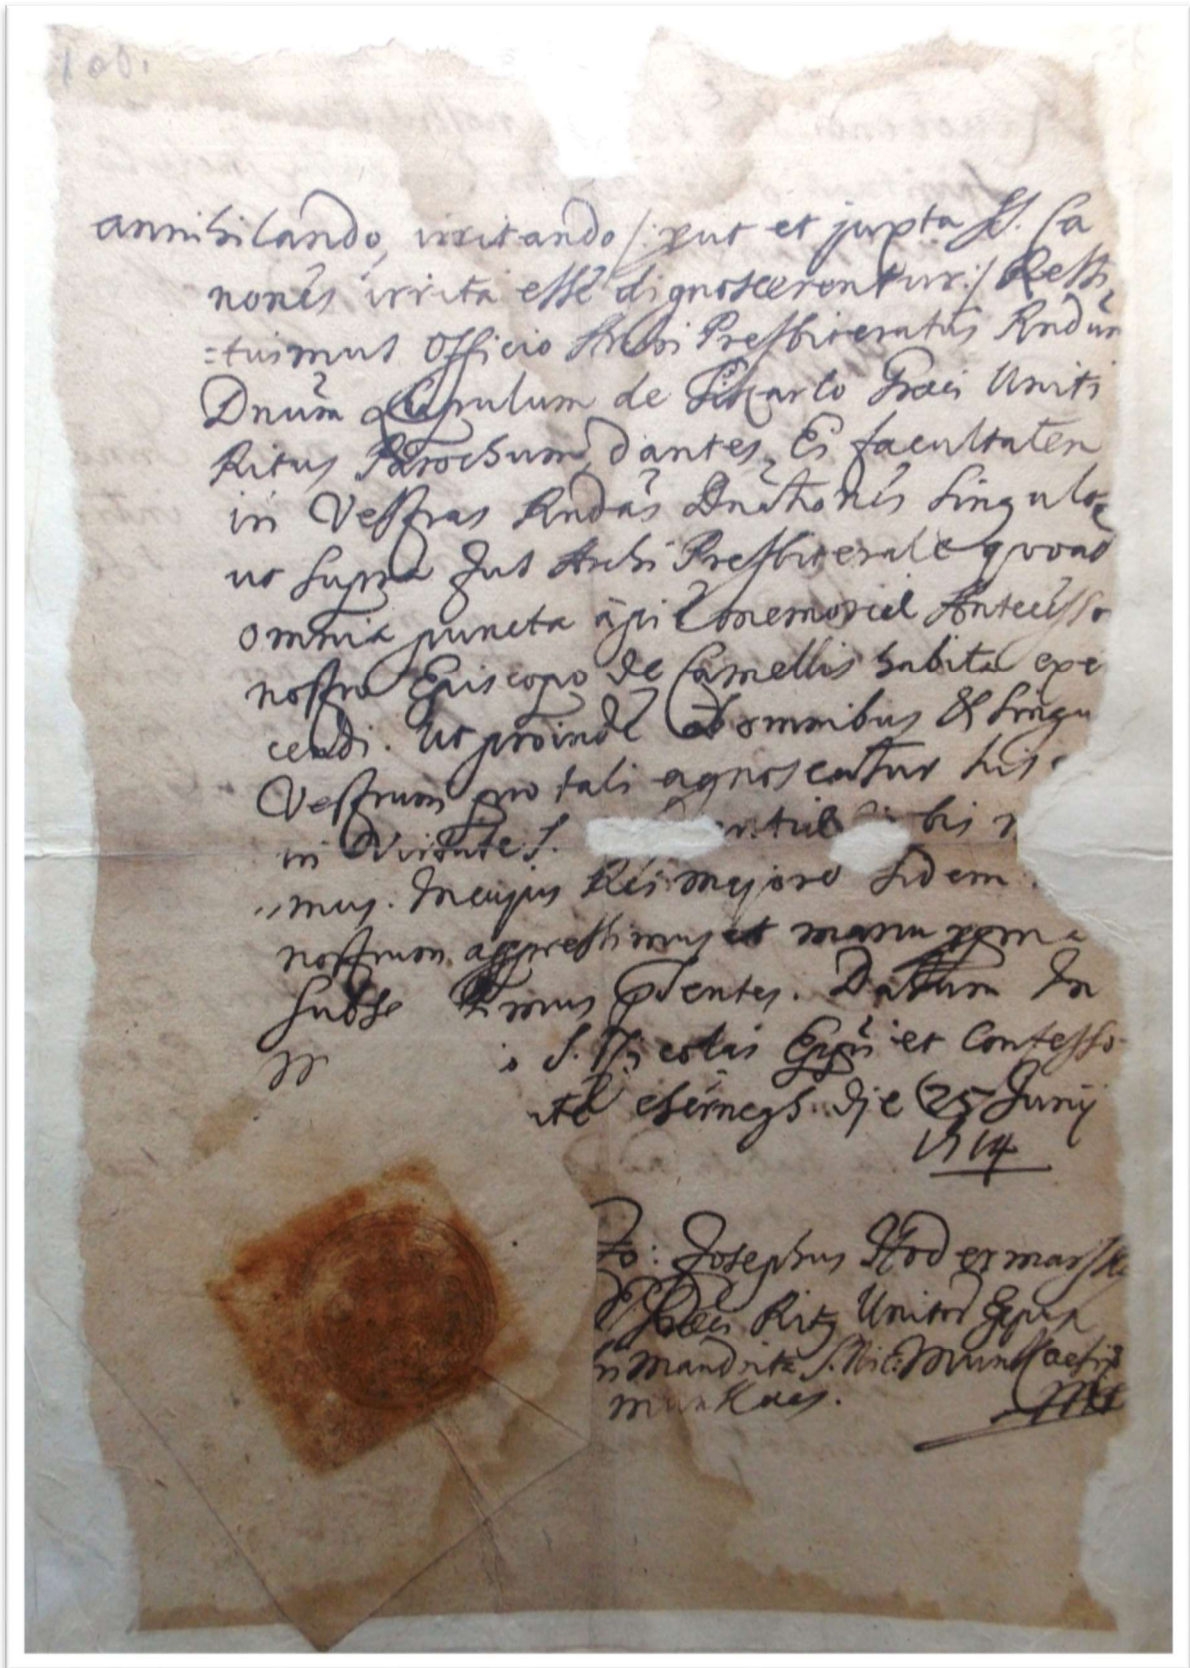 100.
annihilando, irritando /: put et juxta SS. Ca
nones irrita esse dignoscerentur :/ Resti,
=tuimus Officio Archi Presbiteratus Rndum
Dnum Lupulum de Graeci Uniti
Ritus Parochum, dantes Ei facultatem
in Vestras Rndas Dnationes singulas
ut supra Jus Archi Presbiterale quoad
omnia puncta memoriae Antecesso
nostro Episcopo de Camellis habita exe
cendi. Ut proinde ab omnibus & singu
Vestrum pro tali agnoscatur his
in Virtute S. bis
mus. In cujus Rei majore fidem
nostrum appressimus et manu ppria
subse mus Pdentes. Datum In
M o S. Nicolai Eppi et Confesso
die 25 Junij
1714
Jo: Josephus Hodermarski
Graeci Rit9 Unitor Eppus
mandrita S. Nic: Munkacsij
Munkacs.